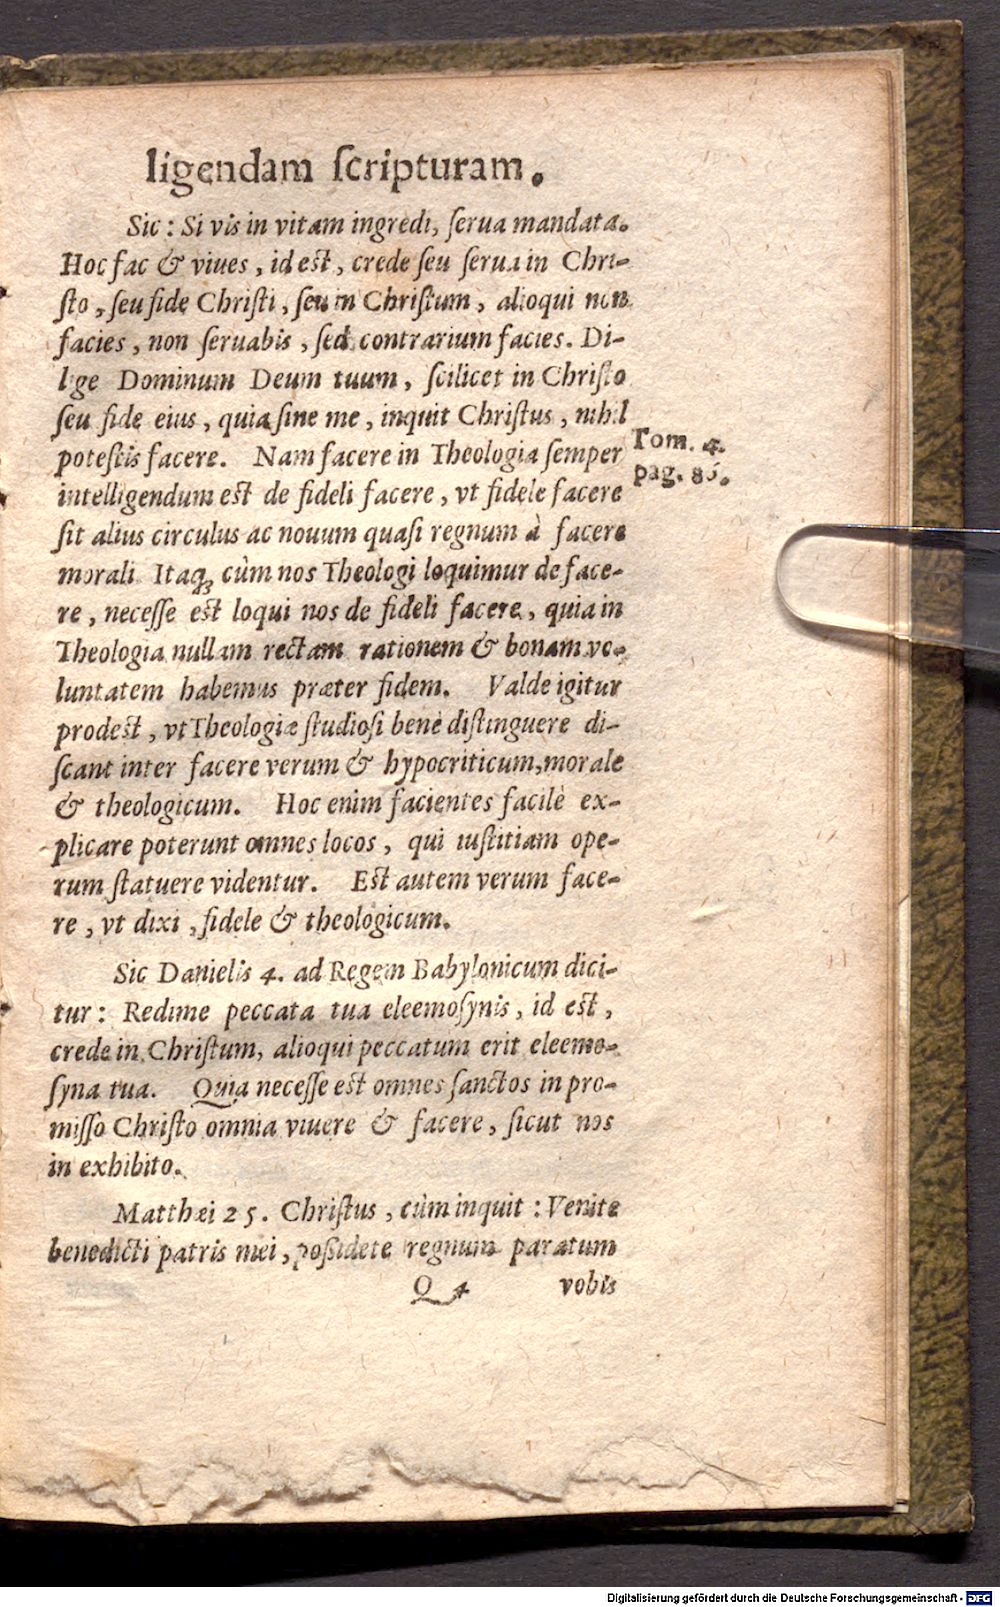 ligendam ſcripturam.
Sic: Si vis in vitam ingredi, ſerua mandata.
Hoc fac & viues, id eſt, crede ſeu ſerua in Chri-
ſto, ſeu fide Chriſti, ſeu in Chriſtum, alioqui non
facies, non ſeruabis, ſed contrarium facies. Di-
lige Dominum Deum tuum, ſcilicet in Chriſto
ſeu fide eius, quia ſine me, inquit Chriſtus, nihil
poteſtis facere. Nam facere in Theologia ſemper
Tom. 4.
pag. 86.
intelligendum eſt de fideli facere, vt fidele facere
ſit alius circulus ac nouum quaſi regnum à facere
morali. Itaq; cùm nos Theologi loquimur de face-
re, neceſſe eſt loqui nos de fideli facere, quia in
Theologia nullam rectam rationem & bonam vo-
luntatem habemus præter fidem. Valde igitur
prodeſt, vt Theologiæ ſtudioſi benè diſtinguere di-
ſcant inter facere verum & hypocriticum, morale
& theologicum. Hoc enim facientes facilè ex-
plicare poterunt omnes locos, qui iuſtitiam ope-
rum ſtatuere videntur. Eſt autem verum face-
re, vt dixi, fidele & theologicum.
Sic Danielis 4. ad Regem Babylonicum dici-
tur: Redime peccata tua eleemoſynis, id eſt,
crede in Chriſtum, alioqui peccatum erit eleemo-
ſyna tua. Quia neceſſe eſt omnes ſanctos in pro-
miſſo Chriſto omnia viuere & facere, ſicut nos
in exhibito.
Matthæi 25. Chriſtus, cùm inquit: Venite
benedicti patris mei, poſsidete regnum paratum
Q 4 vobis
Digitalisierung gefördert durch die Deutsche Forschungsgemeinschaft - DFG